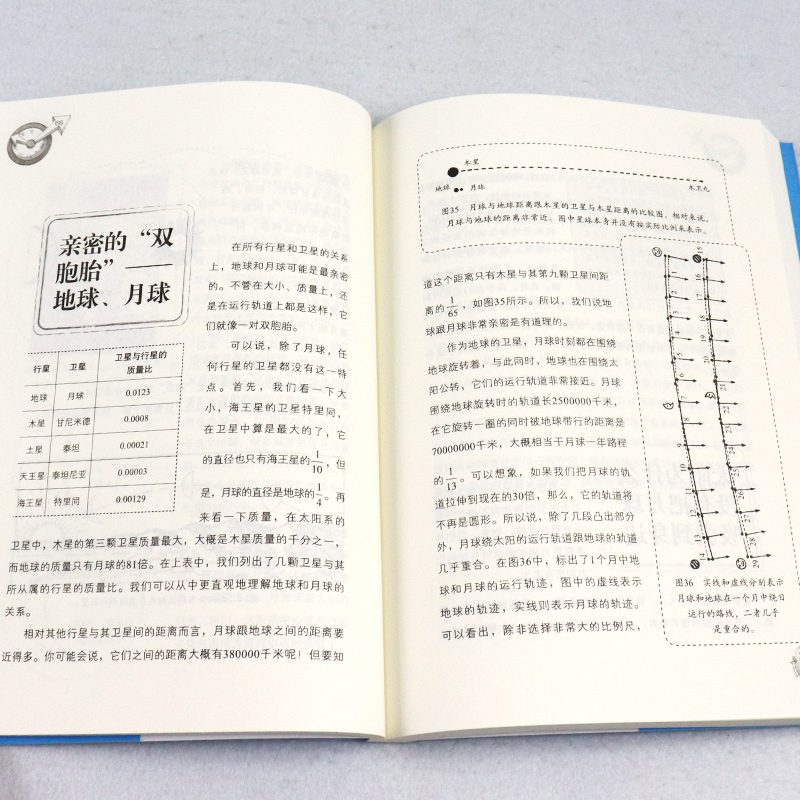 亲密的“双
胞胎”——
地球、月球
在所有行星和卫星的关系
上，地球和月球可能是最亲密
的。不管在大小、质量上，还
是在运行轨道上都是这样，它
们就像一对双胞胎。
可以说，除了月球，任
何行星的卫星都没有这一特
点。首先，我们看一下大
小，海王星的卫星特里同，
在卫星中算是最大的了，它
的直径也只有海王星的1/10，但
是，月球的直径是地球的1/4。再
来看一下质量，在太阳系的
行星 卫星 卫星与行星的质量比
地球 月球 0.0123
木星 甘尼米德 0.0008
土星 泰坦 0.00021
天王星 泰坦尼亚 0.00003
海王星 特里同 0.00129
卫星中，木星的第三颗卫星质量最大，大概是木星质量的千分之一，
而地球的质量只有月球的81倍。在上表中，我们列出了几颗卫星与其
所从属的行星的质量比。我们可以从中更直观地理解地球和月球的
关系。
相对其他行星与其卫星间的距离而言，月球跟地球之间的距离要
近得多。你可能会说，它们之间的距离大概有380000千米呢！但要知
木星
地球 月球 木卫九
图35 月球与地球距离跟木星的卫星与木星距离的比较图。相对来说，
月球与地球的距离非常近。图中星球本身并没有按实际比例来表示。
道这个距离只有木星与其第九颗卫星间距
离的1/65，如图35所示。所以，我们说地
球跟月球非常亲密是有道理的。
作为地球的卫星，月球时刻都在围绕
地球旋转着，与此同时，地球也在围绕太
阳公转，它们的运行轨道非常接近。月球
围绕地球旋转时的轨道长2500000千米，
在它旋转一圈的同时被地球带行的距离是
70000000千米，大概相当于月球一年路程
的1/13。可以想象，如果我们把月球的轨
道拉伸到现在的30倍，那么，它的轨道将
不再是圆形。所以说，除了几段凸出部分
外，月球绕太阳的运行轨道跟地球的轨道
几乎重合。在图36中，标出了1个月中地
球和月球的运行轨迹，图中的虚线表示
地球的轨迹，实线则表示月球的轨迹。
可以看出，除非选择非常大的比例尺，
图36 实线和虚线分别表示
月球和地球在一个月中绕日
运行的路线，二者几乎
是重合的。